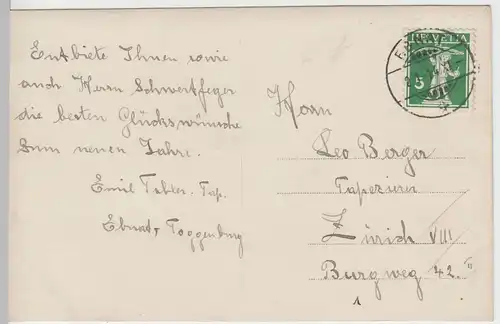 Entbiete Ihnen sowie
auch Herrn Schwertfeger
die besten Glückswünsche
zum neuen Jahre.
Emil Tap.
Ebnat, Toggenburg
HELVETIA
5
Herrn
Leo Berger
Tapezierer
Zürich VIII
Burgweg 42.
1